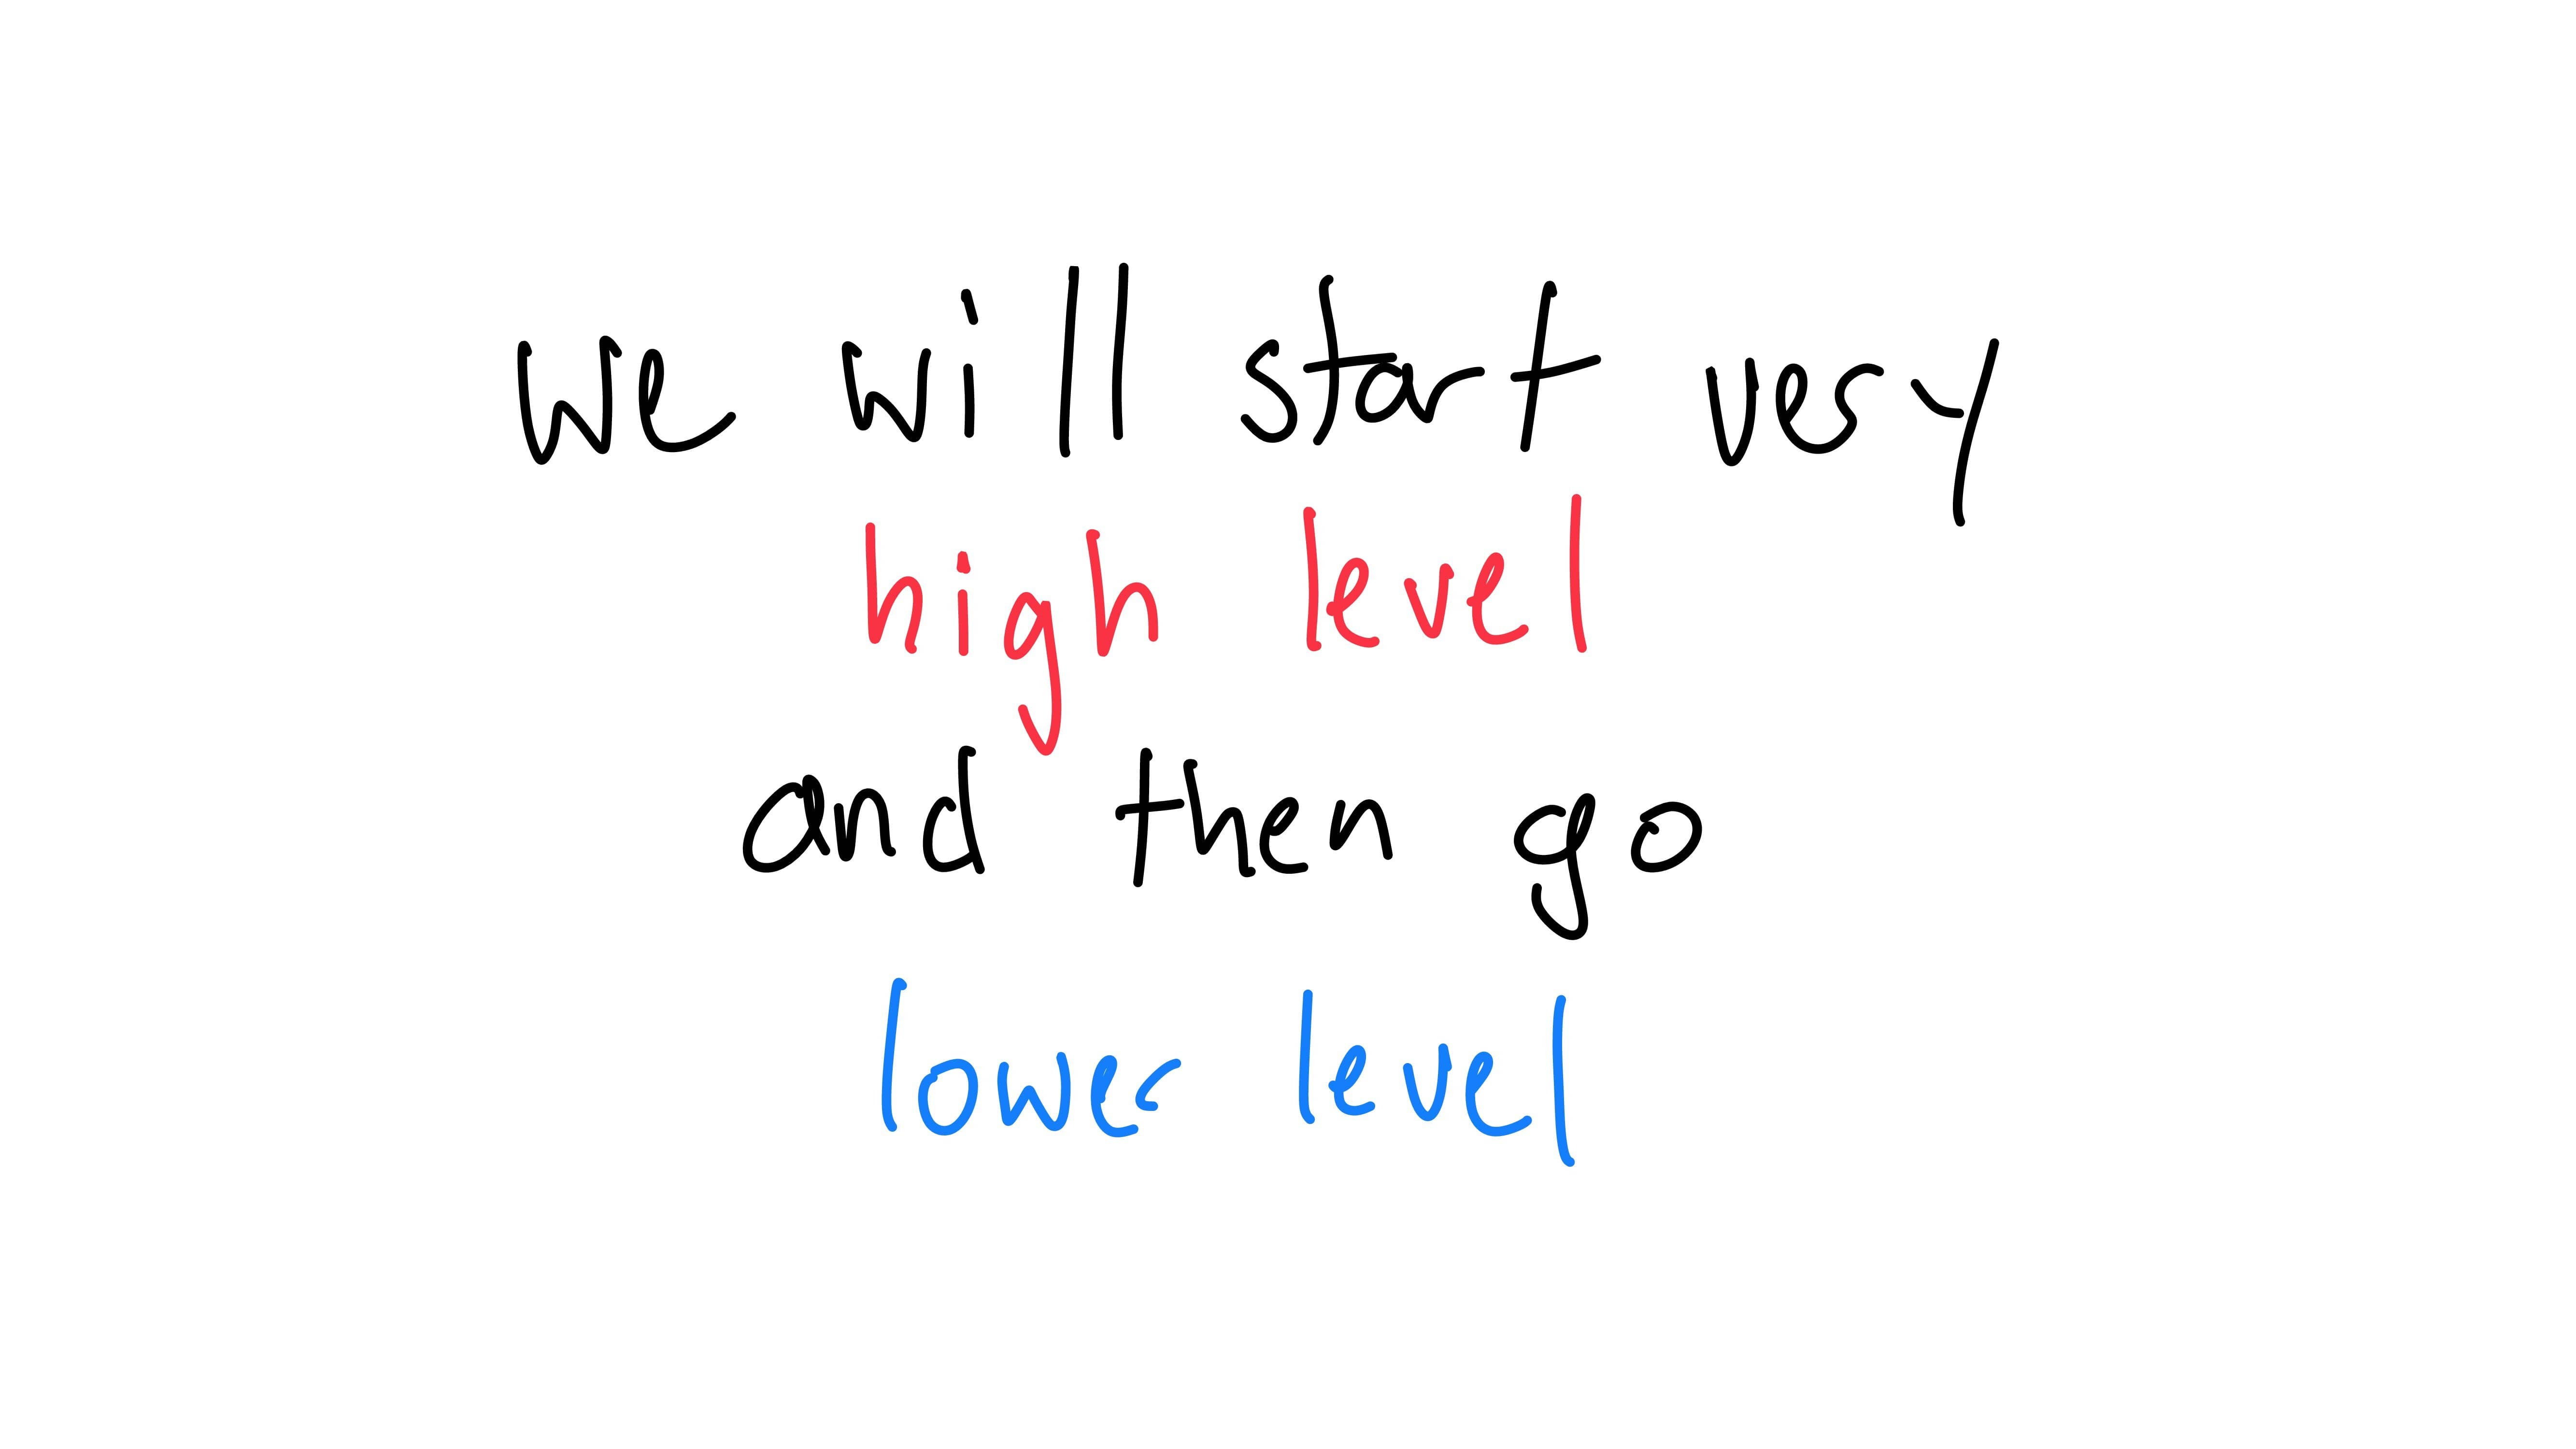 we will start very
high level
and then go
lower level